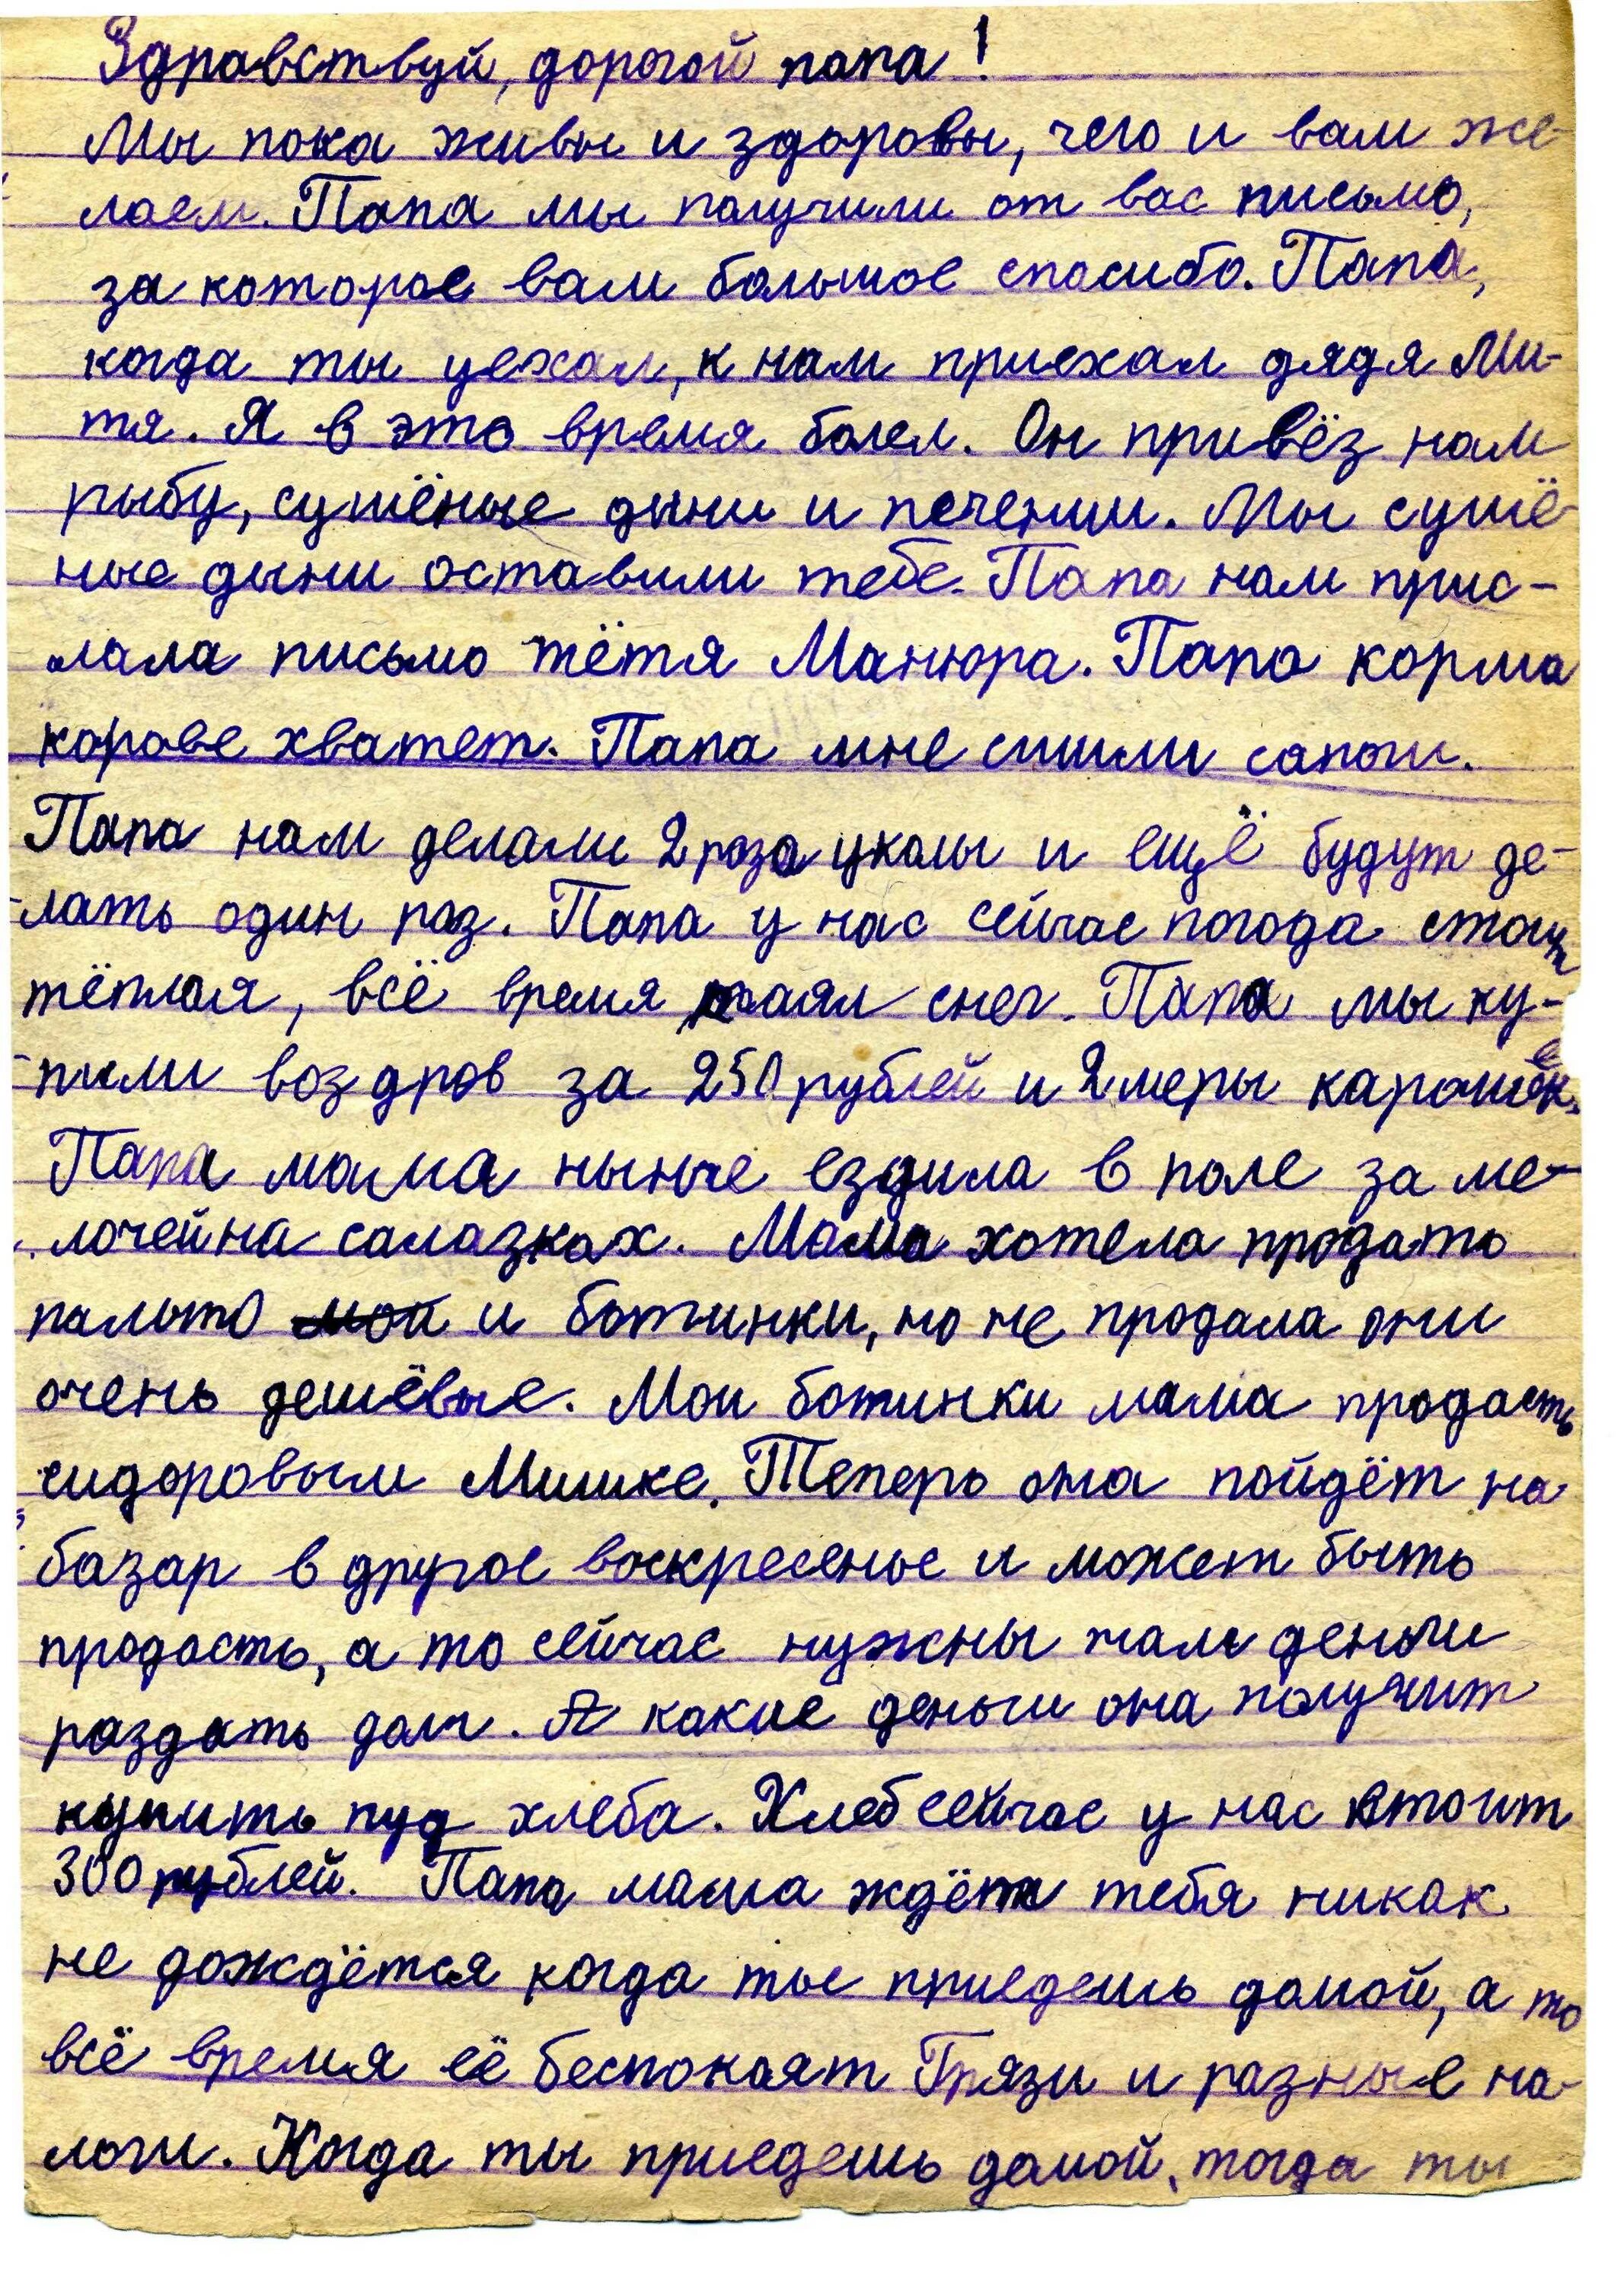 Здравствуй, дорогой папа!
Мы пока живы и здоровы, чего и вам же-
лаем. Папа мы получили от вас письмо,
за которое вам большое спасибо. Папа,
когда ты уехал, к нам приехал дядя Ми-
тя. Я в это время болел. Он привёз нам
рыбу, сушёные дыни и печении. Мы сушё-
ные дыни оставили тебе. Папа нам прис-
лала письмо тётя Манюра. Папа корма
корове хватет. Папа мне сшили сапоги.
Папа нам делали 2 раза уколы и ещё будут де-
-лать один раз. Папа у нас сейчас погода стоит
тёплая, всё время таял снег. Папа мы ку-
-пили воз дров за 250 рублей и 2 меры карошек.
Папа мама нынче ездила в поле за ме-
лочей на салазках. Мама хотела продать
пальто мои и ботинки, но не продала они
очень дешёвые. Мои ботинки мама продасть
сидоровым Мишке. Теперь она пойдёт на
базар в другое воскресенье и может быть
продасть, а то сейчас нужны нам деньги
раздать долг. А какие деньги она получит
купить пуд хлеба. Хлеб сейчас у нас стоит
300 рублей. Папа мама ждёт тебя никак
не дождётся когда ты приедешь домой, а то
всё время её беспокоят Грязи и разные на-
логи. Когда ты приедешь домой, тогда ты